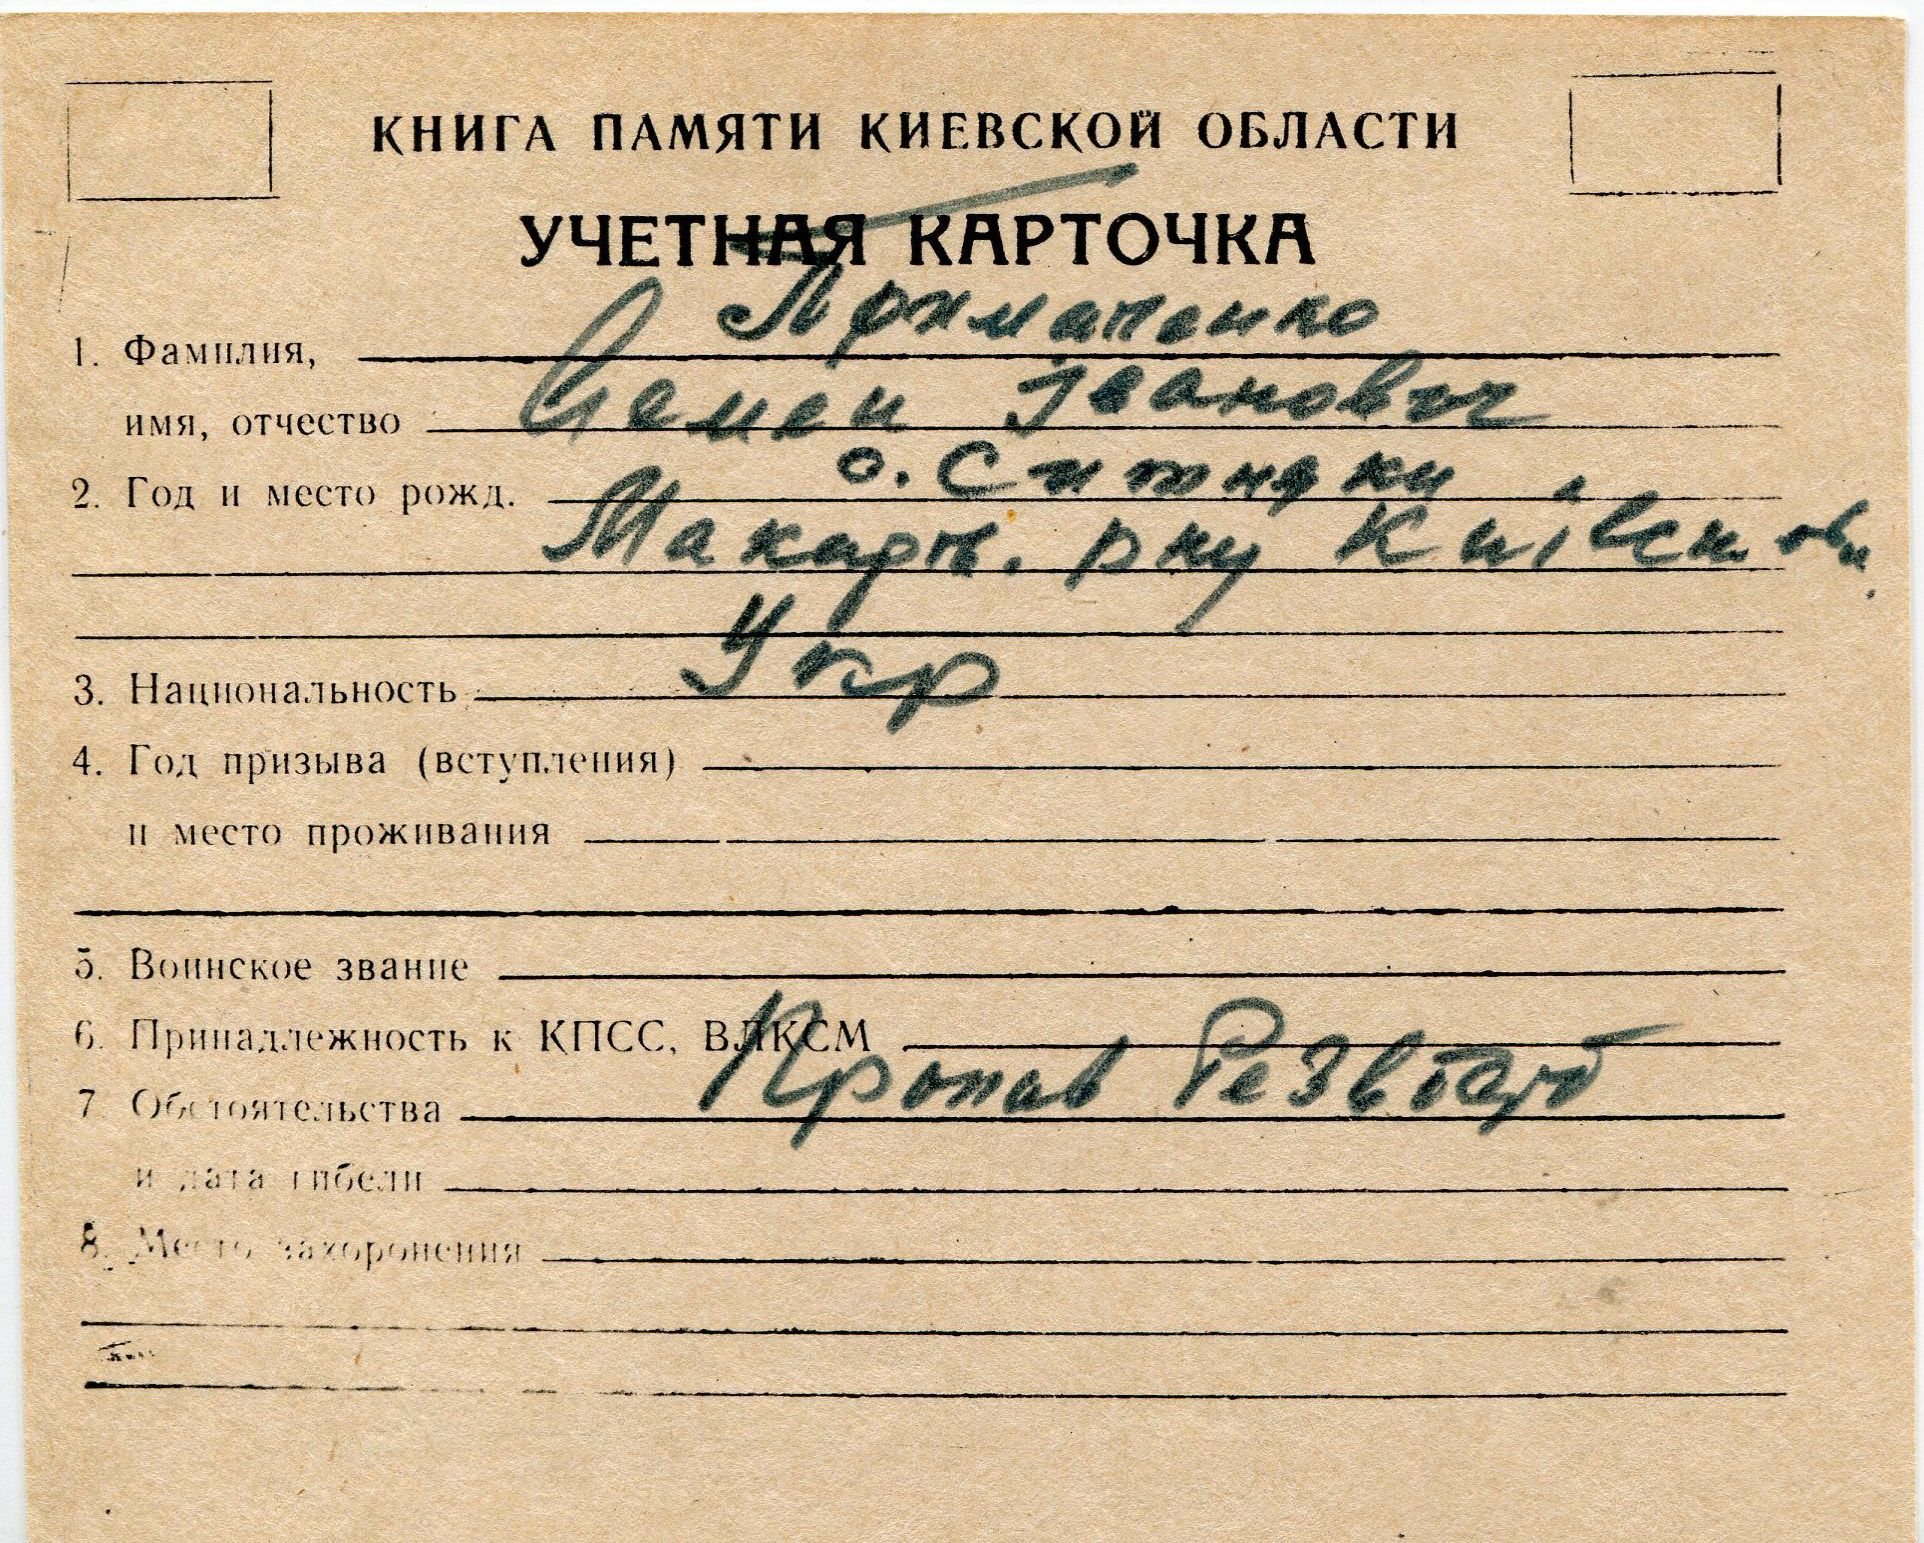 КНИГА ПАМЯТИ КИЕВСКОЙ ОБЛАСТИ
УЧЕТНАЯ КАРТОЧКА
1. Фамилия, Примаченко
имя, отчество Семен Іванович
2. Год и место рожд. с. Ситняки
Макарів. р-ну Київськ. обл.
3. Национальность Укр
4. Год призыва (вступления)
и место проживания
5. Воинское звание
6. Принадлежность к КПСС, ВЛКСМ
7. Обстоятельства Пропав безвісти
и дата гибели
8. Место захоронения